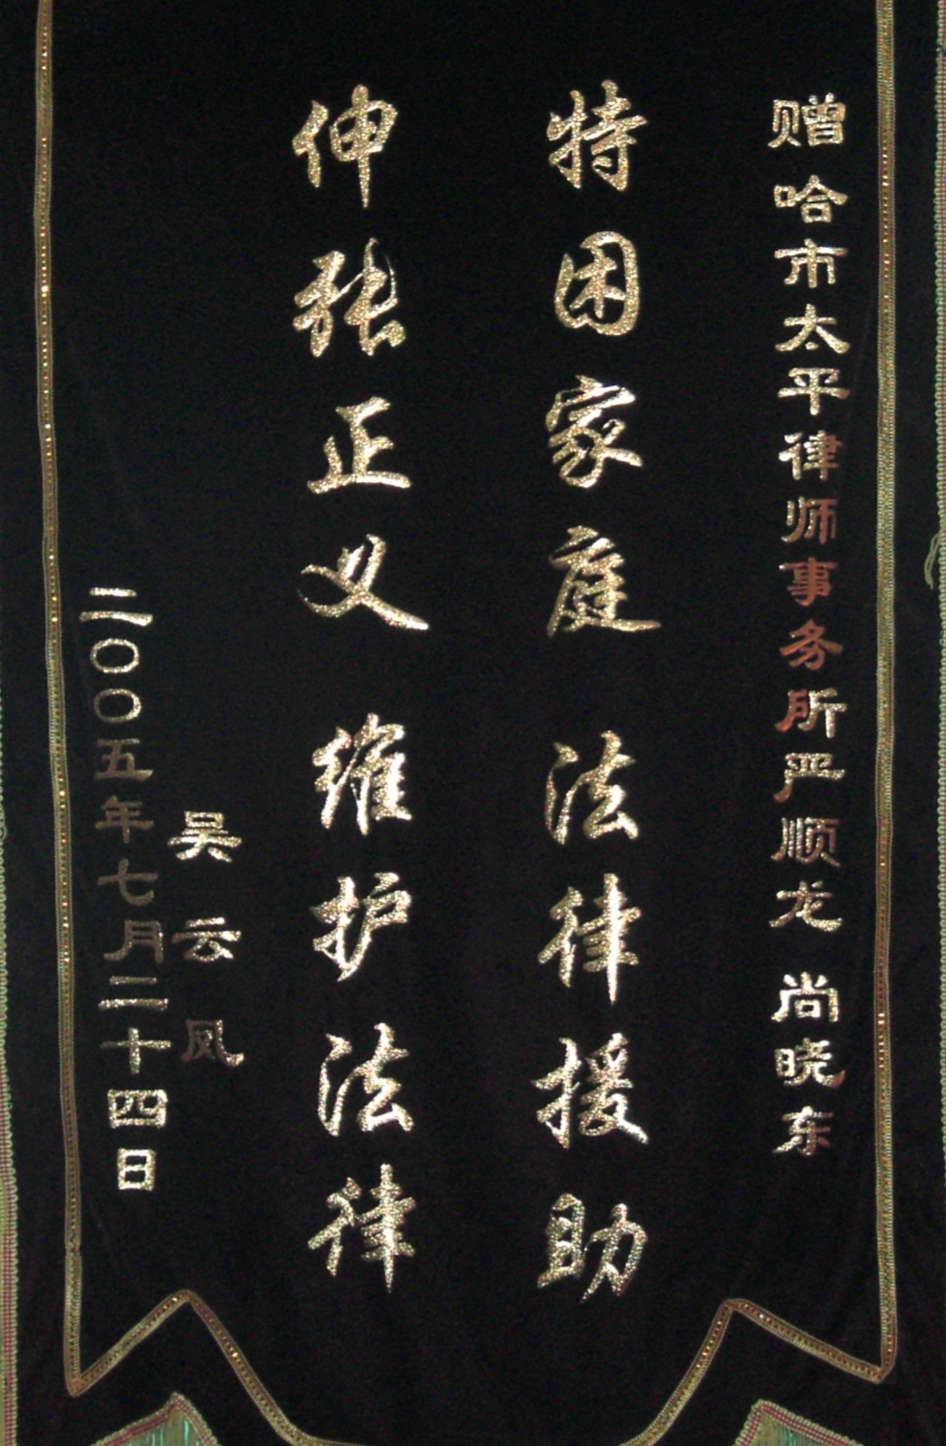 赠哈市太平律师事务所严顺龙 尚晓东
特困家庭 法律援助
伸张正义 维护法律
吴云凤
二〇〇五年七月二十四日